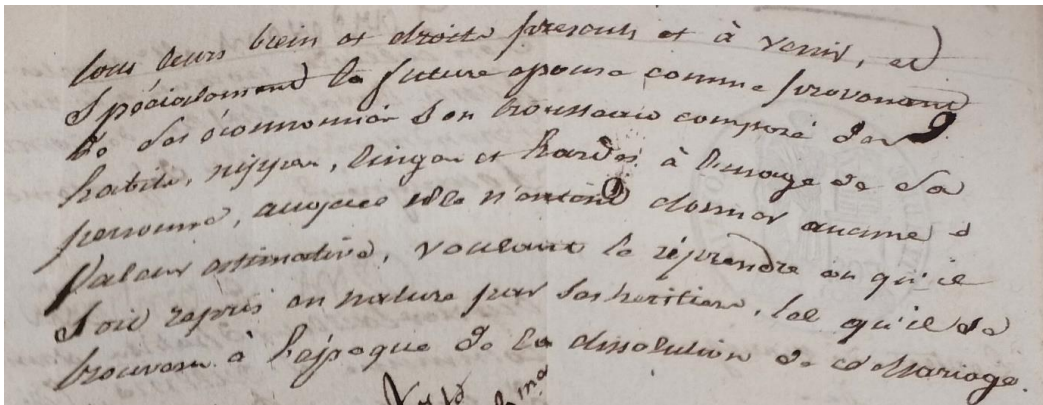 tous leurs bien et droits presents et à venir, et
spécialement la future epouse comme provenant
de ses économies son trousseau composé des
habits, nippes, linges et hardes à l'usage de sa
personne, auquel elle n'entend donner aucune
valeur estimative, voulant le réprendre ou qu'il
soit repris en nature par ses heritiers, tel qu'il se
trouvera à l'époque de la dissolution de ce Mariage.